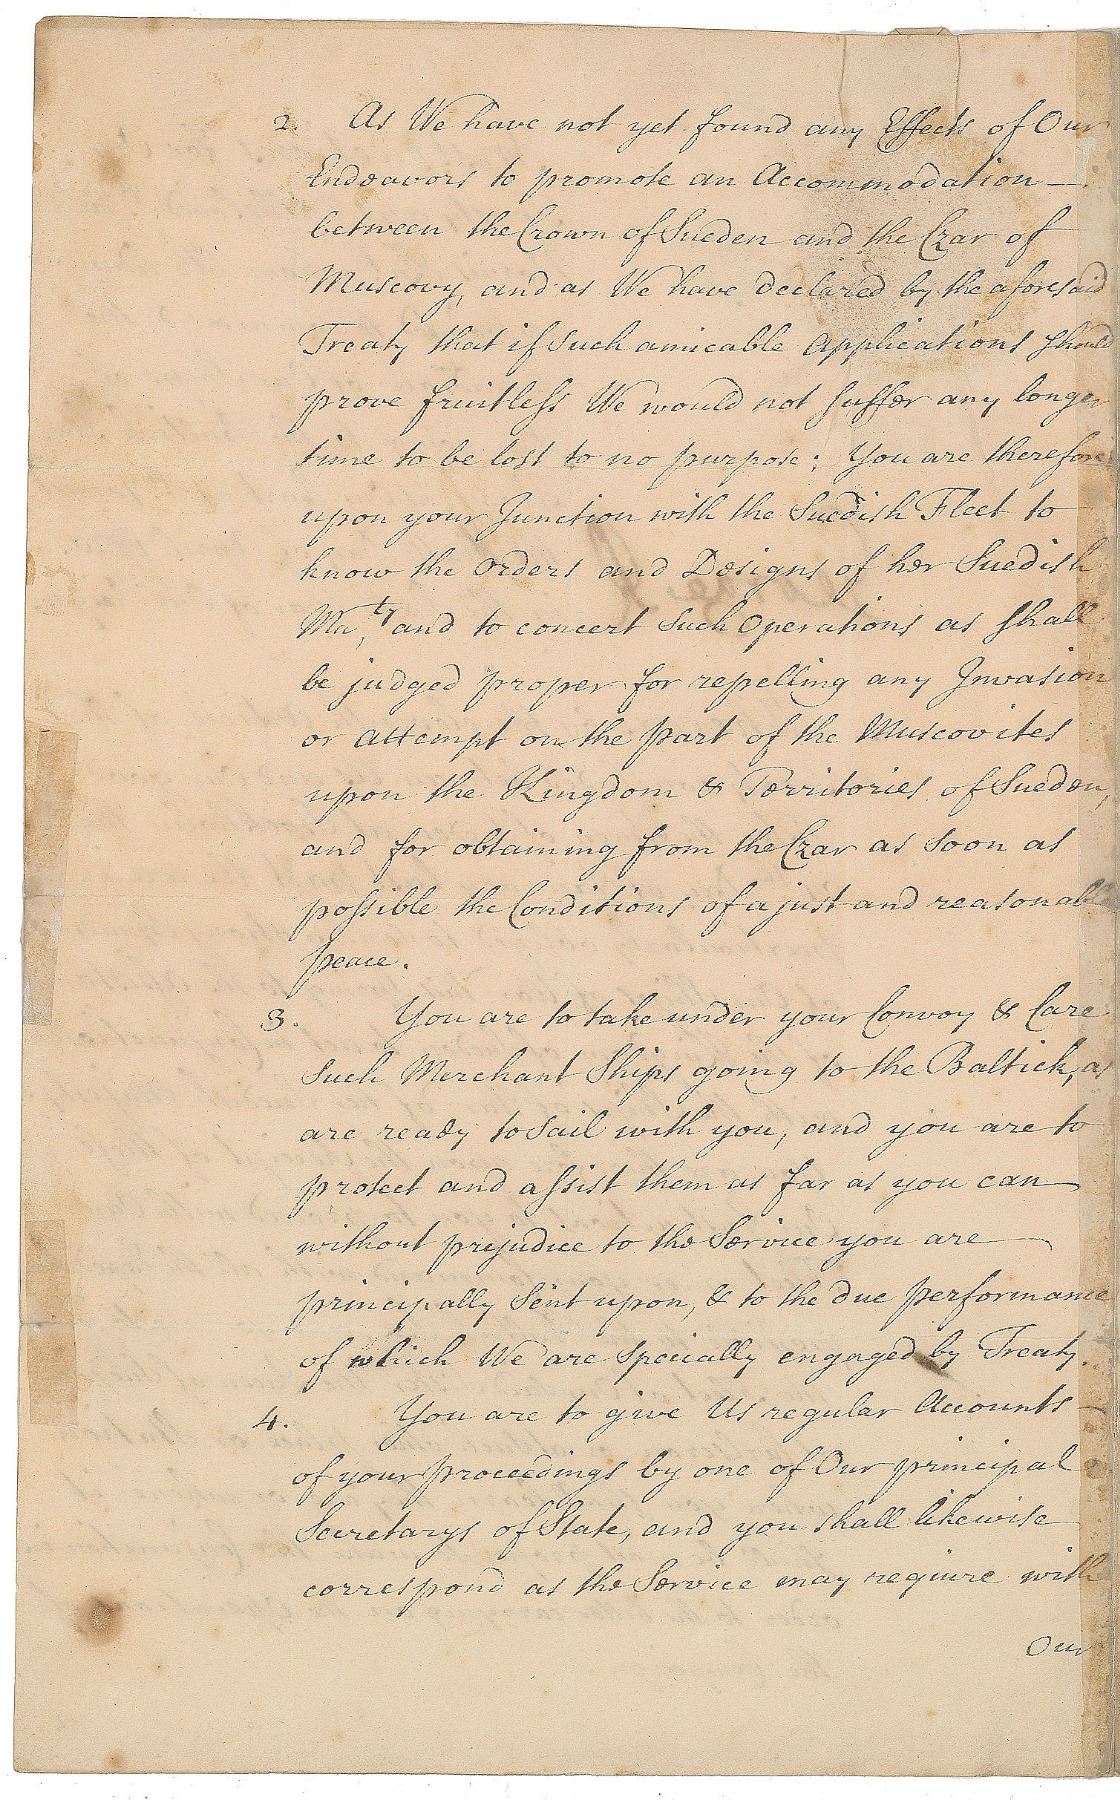 2. As We have not yet found any Effects of Our
Endeavors to promote an Accommodation —
between the Crown of Sueden and the Czar of
Muscovy, and as We have declared by the aforesaid
Treaty that if Such amicable Applications should
prove fruitless We would not suffer any longer
time to be lost to no purpose; You are therefore
upon your Junction with the Suedish Fleet to
know the Orders and Designs of her Suedish
Ma,ty and to concert Such Operations as shall
be judged proper for repelling any Invasion
or attempt on the part of the Muscovites
upon the Kingdom & Territories of Sueden,
and for obtaining from the Czar as soon as
possible the Conditions of a just and reasonable
peace.
3. You are to take under your Convoy & Care
Such Merchant Ships going to the Baltick, as
are ready to Sail with you, and you are to
protect and assist them as far as you can —
without prejudice to the Service you are —
principally Sent upon, & to the due performance
of which We are Specially engaged by Treaty.
4. You are to give Us regular Accounts —
of your proceedings by one of Our principal
Secretarys of State, and you shall likewise
correspond as the Service may require with
Our